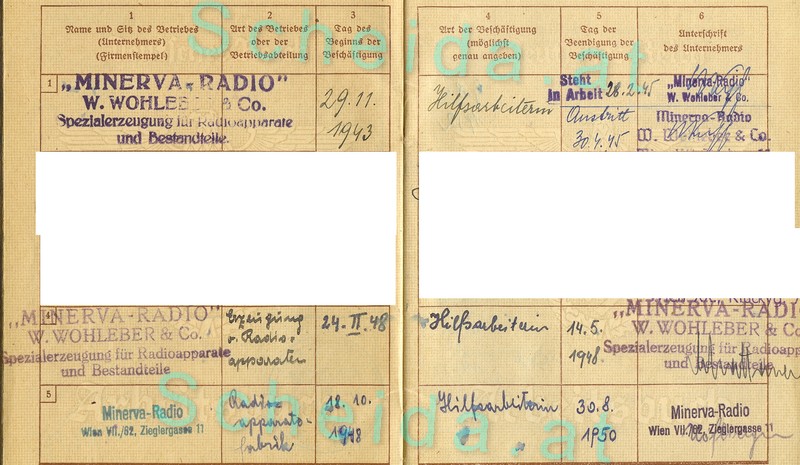 1
Name und Sitz des Betriebes
(Unternehmers)
(Firmenstempel)
2
Art des Betriebes
oder der
Betriebsabteilung
3
Tag des
Beginns der
Beschäftigung
4
Art der Beschäftigung
(möglichst
genau angeben)
5
Tag der
Beendigung der
Beschäftigung
6
Unterschrift
des Unternehmers
Scheida.at
1
„MINERVA-RADIO"
W. WOHLEBER & Co.
Spezialerzeugung für Radioapparate
und Bestandteile.
29.11.
1943
Hilfsarbeiterin
Steht
in Arbeit 28.2.45
Austritt
30.4.45
„Minerva-Radio"
W. Wohleber & Co.
Minerva-Radio
W. Wohleber & Co.
4
„MINERVA-RADIO"
W. WOHLEBER & Co.
Spezialerzeugung für Radioapparate
und Bestandteile
Erzeugung
v. Radio-
apparaten
24. II. 48
Hilfsarbeiterin
14.5.
1948
MINERVA-RADIO
W. WOHLEBER & Co
Spezialerzeugung für Radioapp
und Bestandteile
5
Minerva-Radio
Wien VII./62, Zieglergasse 11
Radio-
apparate-
fabrik
18. 10.
1948
Hilfsarbeiterin
30.8.
1950
Minerva-Radio
Wien VII./62, Zieglergasse 11
Scheida.at